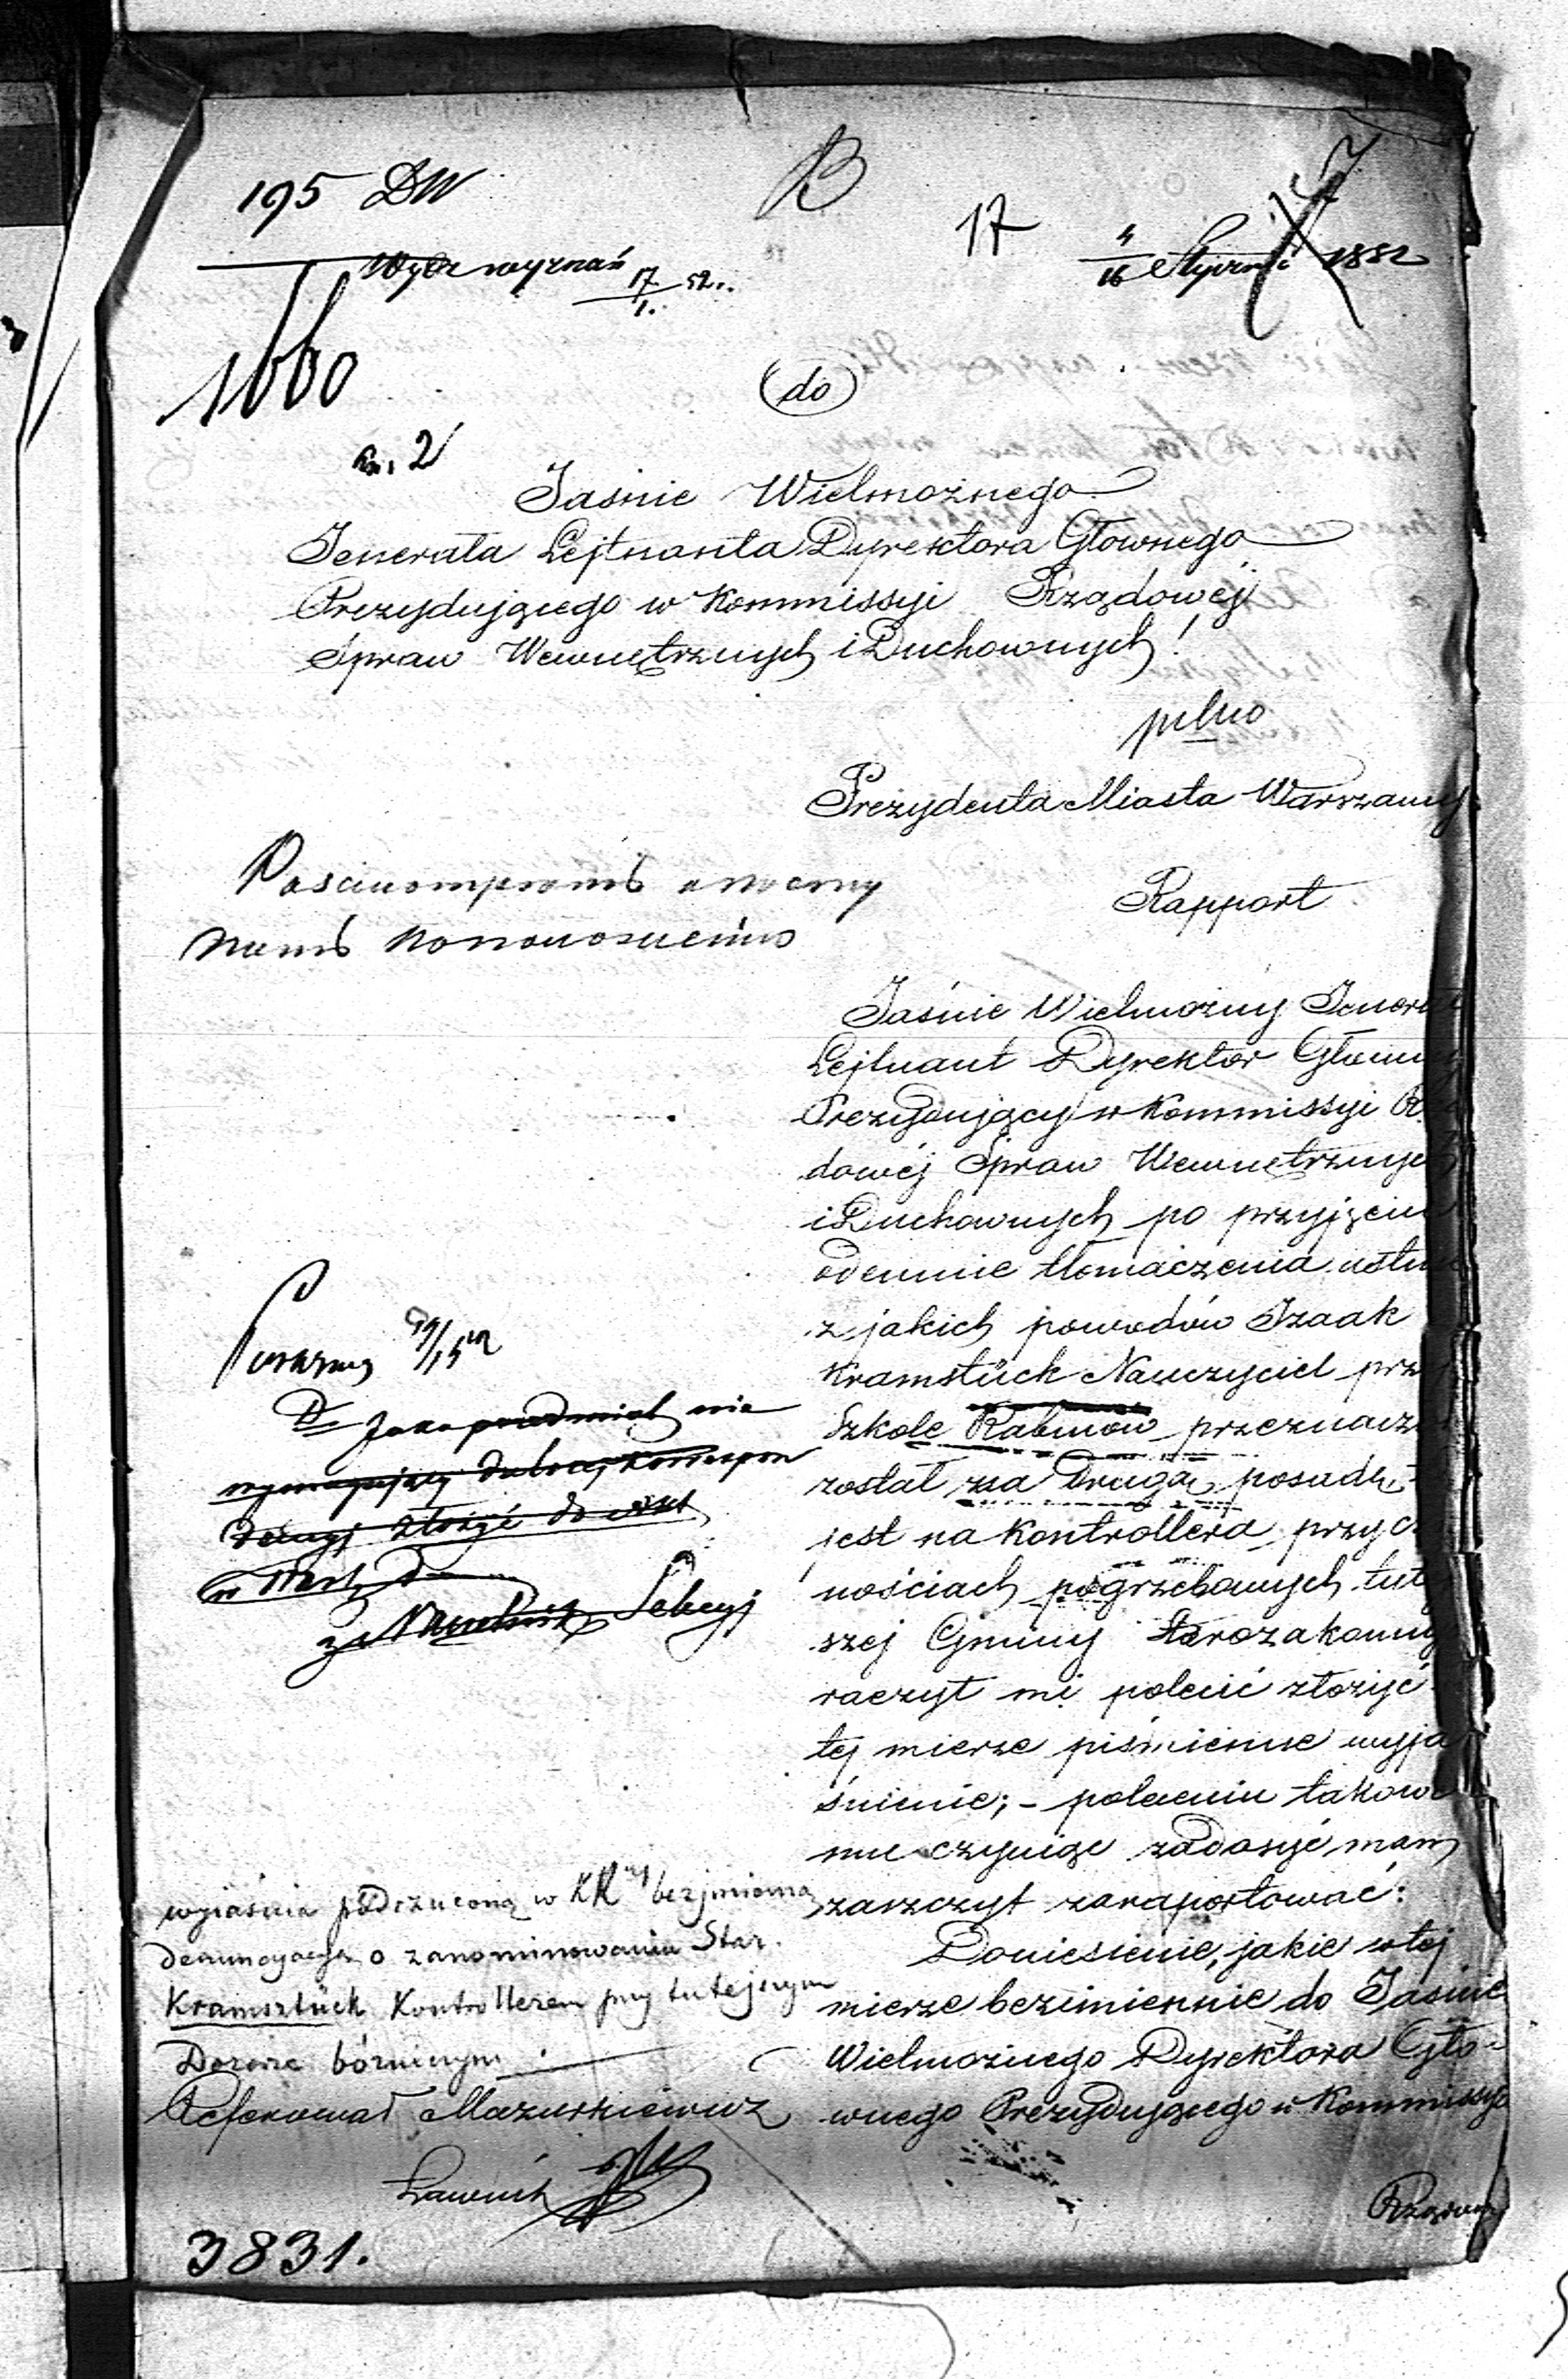 195 DW
B
17
4/16 Stycznia 1852
Wydz wyznań 17/1. 52.
1660
an. 2
do
Jaśnie Wielmożnego
Jenerała Lejtnanta Dyrektora Głownego
Prezydującego w Kommissyi Rządowéj
Spraw Wewnętrznych i Duchownych!
pilno
Prezydenta Miasta Warszawy
Rapport
Jaśnie Wielmożny Jenerał
Lejtnant Dyrektor Głowny
Prezydujący w Kommissyi Rzą
dowéj Spraw Wewnętrznych
i Duchownych po przyjęciu
odemnie tłomaczenia ustne
z jakich powodów Izaak
Kramstück Nauczyciel przy
Szkole Rabinow przeznaczo
został na drugą posadę
jest na Kontrollera przy cz
nościach pogrzebowych tut
szej Gminy Starozakonny
raczył mi polecić złożyć
tej mierze piśmienne wyja
śnienie; – poleceniu takowe
mu czyniąc zadosyć mam
zaszczyt zaraportować:
Doniesienie, jakie w tej
mierze bezimiennie do Jaśnie
Wielmożnego Dyrektora Gło-
wnego Prezydującego w Kommissyi
Rządowej
D Jako przedmiot nie
wymagający dalszej korrespon
dencyj złożyć do akt
za Naczelnik Sekcyj
wyiaśnia podrzuconą w KR bezjmienną
denuncyacyą o zanominowaniu Star.
Kramsztück Kontrollerem przy tutejszym
Dozorze bóżniczym.
Referował Mazurkiewicz
Ławnik
3831.